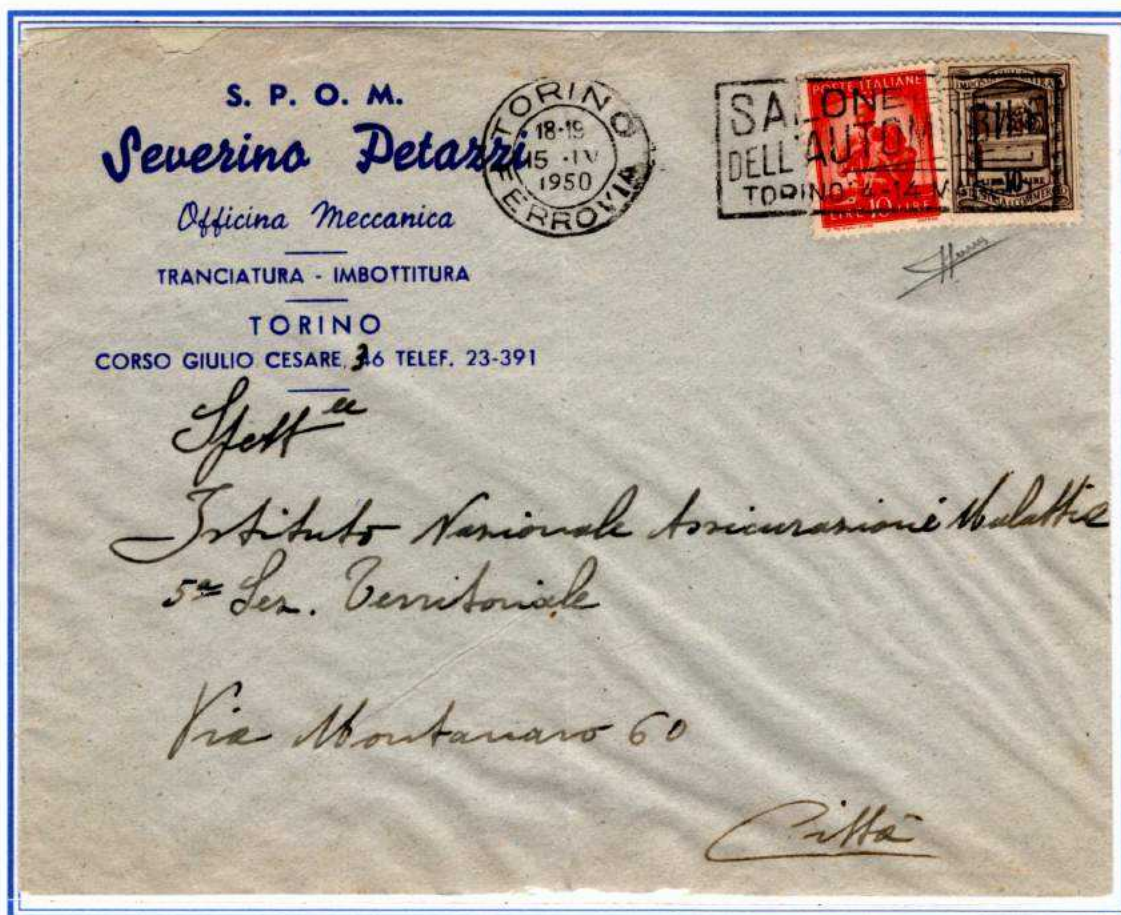 S. P. O. M.
Severino Petazzi
Officina Meccanica
TRANCIATURA - IMBOTTITURA
TORINO
CORSO GIULIO CESARE, 36 TELEF. 23-391
TORINO
18-19
15 · IV
1950
FERROVIA
SALONE
DELL'AUTOM
TORINO 4-14 V
POSTE ITALIANE
LIRE 10 LIRE
10
Spett le
Istituto Nazionale Assicurazione Malattie
5a Sez. Territoriale
Via Montanaro 60
Città